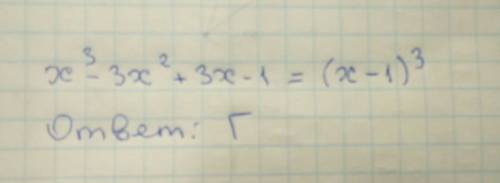 x³ - 3x² + 3x - 1 = (x - 1)³
Ответ: Г